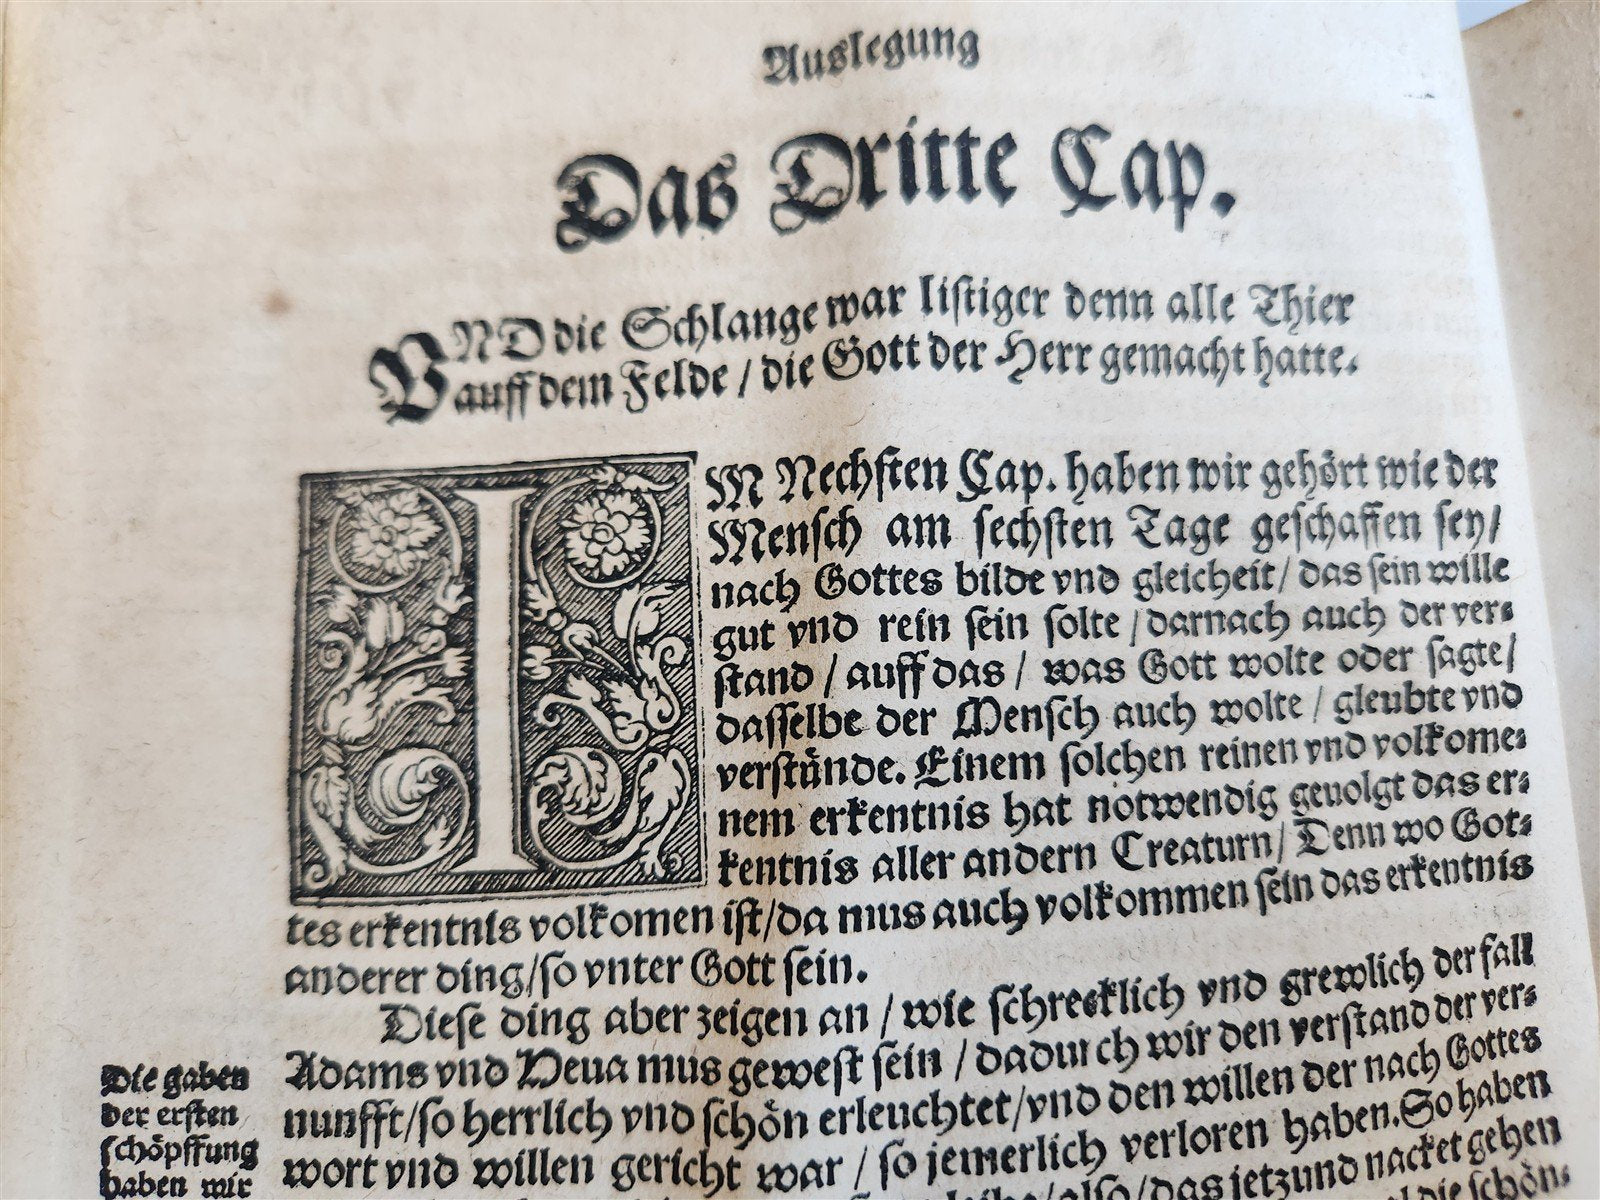 Auslegung
Das Dritte Cap.
VND die Schlange war listiger denn alle Thier
auff dem Felde / die Gott der Herr gemacht hatte.
IM Nechsten Cap. haben wir gehört wie der
Mensch am sechsten Tage geschaffen sey/
nach Gottes bilde vnd gleicheit / das sein wille
gut vnd rein sein solte / darnach auch der ver=
stand / auff das / was Gott wolte oder sagte /
dasselbe der Mensch auch wolte / gleubte vnd
verstünde. Einem solchen reinen vnd volkome=
nem erkentnis hat notwendig geuolgt das er=
kentnis aller andern Creaturn / Denn wo Got=
tes erkentnis volkomen ist/da mus auch volkommen sein das erkentnis
anderer ding/so vnter Gott sein.
Diese ding aber zeigen an / wie schrecklich vnd grewlich der fall
Adams vnd Heua mus gewest sein / dadurch wir den verstand der ver=
nunfft/so herrlich vnd schön erleuchtet/vnd den willen der nach Gottes
wort vnd willen gericht war / so jemerlich verloren haben. So haben
leibe/also/das jetzund nacket gehen
die schön=
Die gaben
der ersten
schöpffung
haben wir